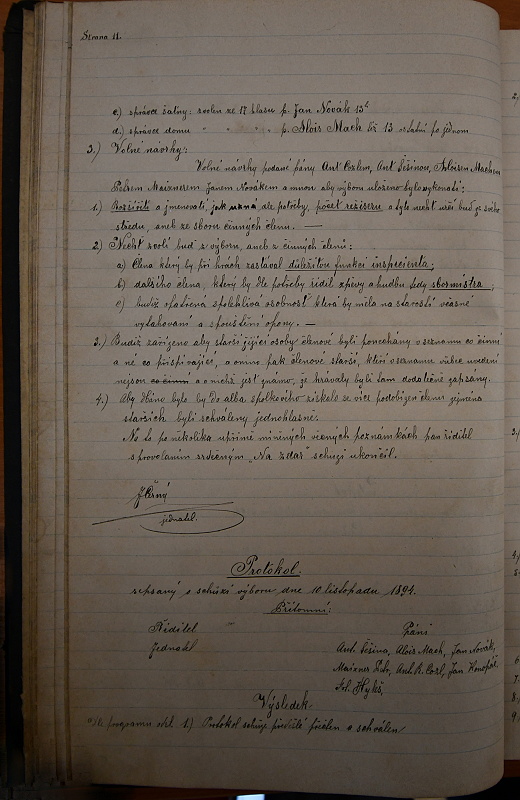 Strana 11.
c.) správce šatny: zvolen ze 17 hlasu p. Jan Novák 13
d.) správce domu " " " p. Alois Mach 13 ostatní po jednom
3.) Volné návrhy:
Volné návrhy podané pány Ant. Cozlem, Ant. Šešinou, Aloisem Machem
Petrem Maixnerem, Janem Novákem a mnou aby výboru uloženo bylo vykonati:
1.) Rozšířiti a jmenovati, jak ale potřeby, počet režiseru a tyto nechť určí buď ze svého
středu, aneb ze sboru činných členu. —
2.) Nechť zvolí buď z výboru, aneb z činných členů:
a) Člena který by při hrách zastával důležitou funkci inspicienta;
b) dalšího člena, který by dle potřeby řídil zpěvy a hudbu tedy sbormistra,
c) budiž opatrná spolehlivá osobnost která by měla na starosti včasné
vytahování a spouštění opony. —
3.) Budiž zařízeno aby starší žijící osoby členové byli ponecháni v seznamu co činní
a né co přispívající, a onino pak členové starší, kteří v seznamu vůbec uvedeni
nejsou co činní a o nichž jest známo, že hrávali byli tam dodatečně zapsány.
4.) Aby dáno bylo by do alba spolkového získalo se více podobizen členu zejména
starších byli schváleny jednohlasně.
Na to po několika upřímě míněných věcných poznámkách pan ředitel
s provoláním srdečným „Na zdar" schuzi ukončil.
J Černý
jednatel.
Protokol.
sepsaný o schůzi výboru dne 10 listopadu 1894.
Přítomni:
Ředitel " Páni
Jednatel Ant. Šešina, Alois Mach, Jan Novák,
Maixner Petr, Ant. R. Cozl, Jan Konopát,
Fr. Hyleš,
Výsledek
dle programu odst. 1.) Protokol schuze předešlé přečten a schválen